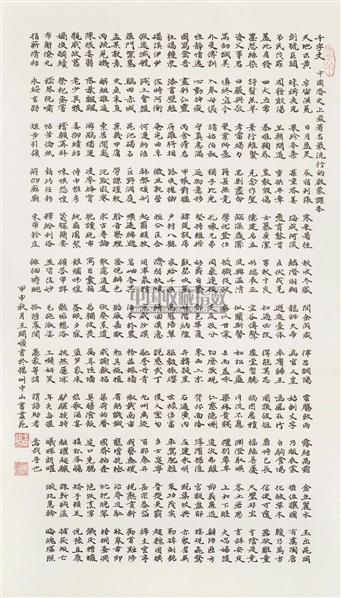 千字文 中國歷史上最著名最流行的啟蒙課本
天地玄黃 宇宙洪荒 日月盈昃 辰宿列張 寒來暑往 秋收冬藏 閏餘成歲 律呂調陽 雲騰致雨 露結為霜 金生麗水 玉出崑岡
劍號巨闕 珠稱夜光 果珍李柰 菜重芥薑 海鹹河淡 鱗潛羽翔 龍師火帝 鳥官人皇 始制文字 乃服衣裳 推位讓國 有虞陶唐
弔民伐罪 周發殷湯 坐朝問道 垂拱平章 愛育黎首 臣伏戎羌 遐邇壹體 率賓歸王 鳴鳳在樹 白駒食場 化被草木 賴及萬方
蓋此身髮 四大五常 恭惟鞠養 豈敢毀傷 女慕貞潔 男效才良 知過必改 得能莫忘 罔談彼短 靡恃己長 信使可覆 器欲難量
墨悲絲染 詩讚羔羊 景行維賢 克念作聖 德建名立 形端表正 空谷傳聲 虛堂習聽 禍因惡積 福緣善慶 尺璧非寶 寸陰是競
資父事君 曰嚴與敬 孝當竭力 忠則盡命 臨深履薄 夙興溫凊 似蘭斯馨 如松之盛 川流不息 淵澄取映 容止若思 言辭安定
篤初誠美 慎終宜令 榮業所基 籍甚無竟 學優登仕 攝職從政 存以甘棠 去而益詠 樂殊貴賤 禮別尊卑 上和下睦 夫唱婦隨
外受傅訓 入奉母儀 諸姑伯叔 猶子比兒 孔懷兄弟 同氣連枝 交友投分 切磨箴規 仁慈隱惻 造次弗離 節義廉退 顛沛匪虧
性靜情逸 心動神疲 守真志滿 逐物意移 堅持雅操 好爵自縻 都邑華夏 東西二京 背邙面洛 浮渭據涇 宮殿盤鬱 樓觀飛驚
圖寫禽獸 畫彩仙靈 丙舍傍啟 甲帳對楹 肆筵設席 鼓瑟吹笙 升階納陛 弁轉疑星 右通廣內 左達承明 既集墳典 亦聚群英
杜稿鍾隸 漆書壁經 府羅將相 路俠槐卿 戶封八縣 家給千兵 高冠陪輦 驅轂振纓 世祿侈富 車駕肥輕 策功茂實 勒碑刻銘
磻溪伊尹 佐時阿衡 奄宅曲阜 微旦孰營 桓公匡合 濟弱扶傾 綺回漢惠 說感武丁 俊乂密勿 多士寔寧 晉楚更霸 趙魏困橫
假途滅虢 踐土會盟 何遵約法 韓弊煩刑 起翦頗牧 用軍最精 宣威沙漠 馳譽丹青 九州禹跡 百郡秦并 嶽宗泰岱 禪主云亭
雁門紫塞 雞田赤城 昆池碣石 鉅野洞庭 曠遠綿邈 巖岫杳冥 治本於農 務茲稼穡 俶載南畝 我藝黍稷 稅熟貢新 勸賞黜陟
孟軻敦素 史魚秉直 庶幾中庸 勞謙謹敕 聆音察理 鑑貌辨色 貽厥嘉猷 勉其祗植 省躬譏誡 寵增抗極 殆辱近恥 林皋幸即
兩疏見機 解組誰逼 索居閒處 沉默寂寥 求古尋論 散慮逍遙 欣奏累遣 慼謝歡招 渠荷的歷 園莽抽條 枇杷晚翠 梧桐蚤凋
陳根委翳 落葉飄颻 遊鵾獨運 凌摩絳霄 耽讀玩市 寓目囊箱 易輶攸畏 屬耳垣牆 具膳餐飯 適口充腸 飽飫烹宰 飢厭糟糠
親戚故舊 老少異糧 妾御績紡 侍巾帷房 紈扇圓潔 銀燭煒煌 晝眠夕寐 藍筍象床 弦歌酒宴 接杯舉觴 矯手頓足 悅豫且康
嫡後嗣續 祭祀烝嘗 稽顙再拜 悚懼恐惶 箋牒簡要 顧答審詳 骸垢想浴 執熱願涼 驢騾犢特 駭躍超驤 誅斬賊盜 捕獲叛亡
布射僚丸 嵇琴阮嘯 恬筆倫紙 鈞巧任釣 釋紛利俗 並皆佳妙 毛施淑姿 工顰妍笑 年矢每催 曦暉朗曜 璇璣懸斡 晦魄環照
指薪修祜 永綏吉劭 矩步引領 俯仰廊廟 束帶矜莊 徘徊瞻眺 孤陋寡聞 愚蒙等誚 謂語助者 焉哉乎也
甲申秋月王開順書於揚州中山書畫苑
中国收藏指数